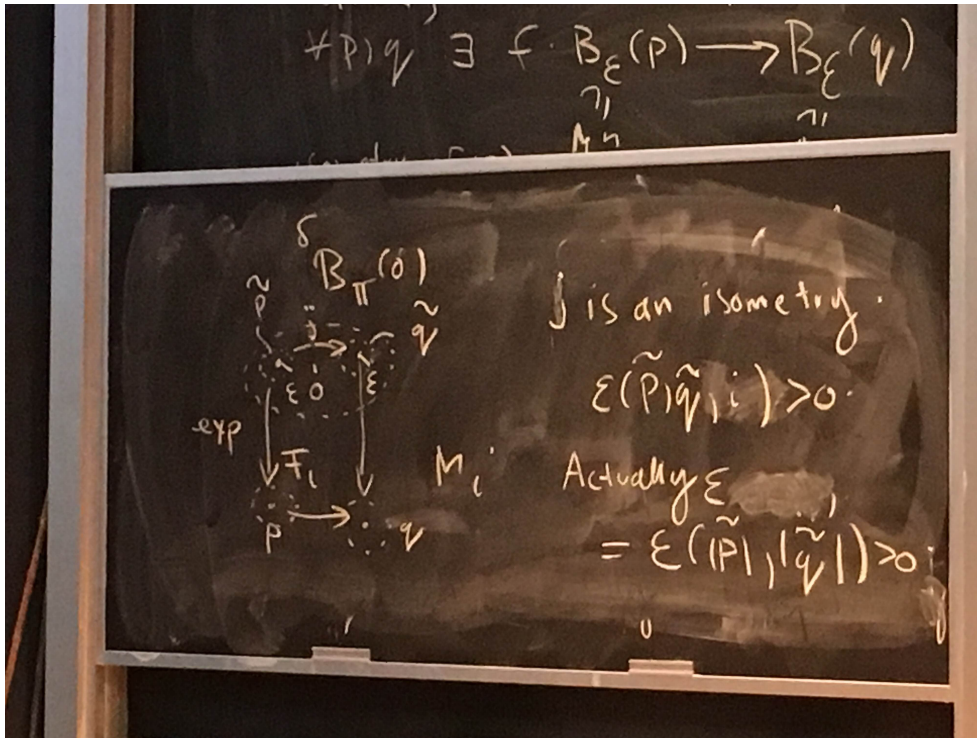 ∀p,q ∃ f: B_ε(p) ⟶ B_ε(q)
δ
B_π(0)
p̃
j
q̃
ε 0 ε
exp
F_i
M_i
p
q
j is an isometry.
ε(p̃, q̃, i) > 0.
Actually ε
= ε(|p̃|, |q̃|) > 0